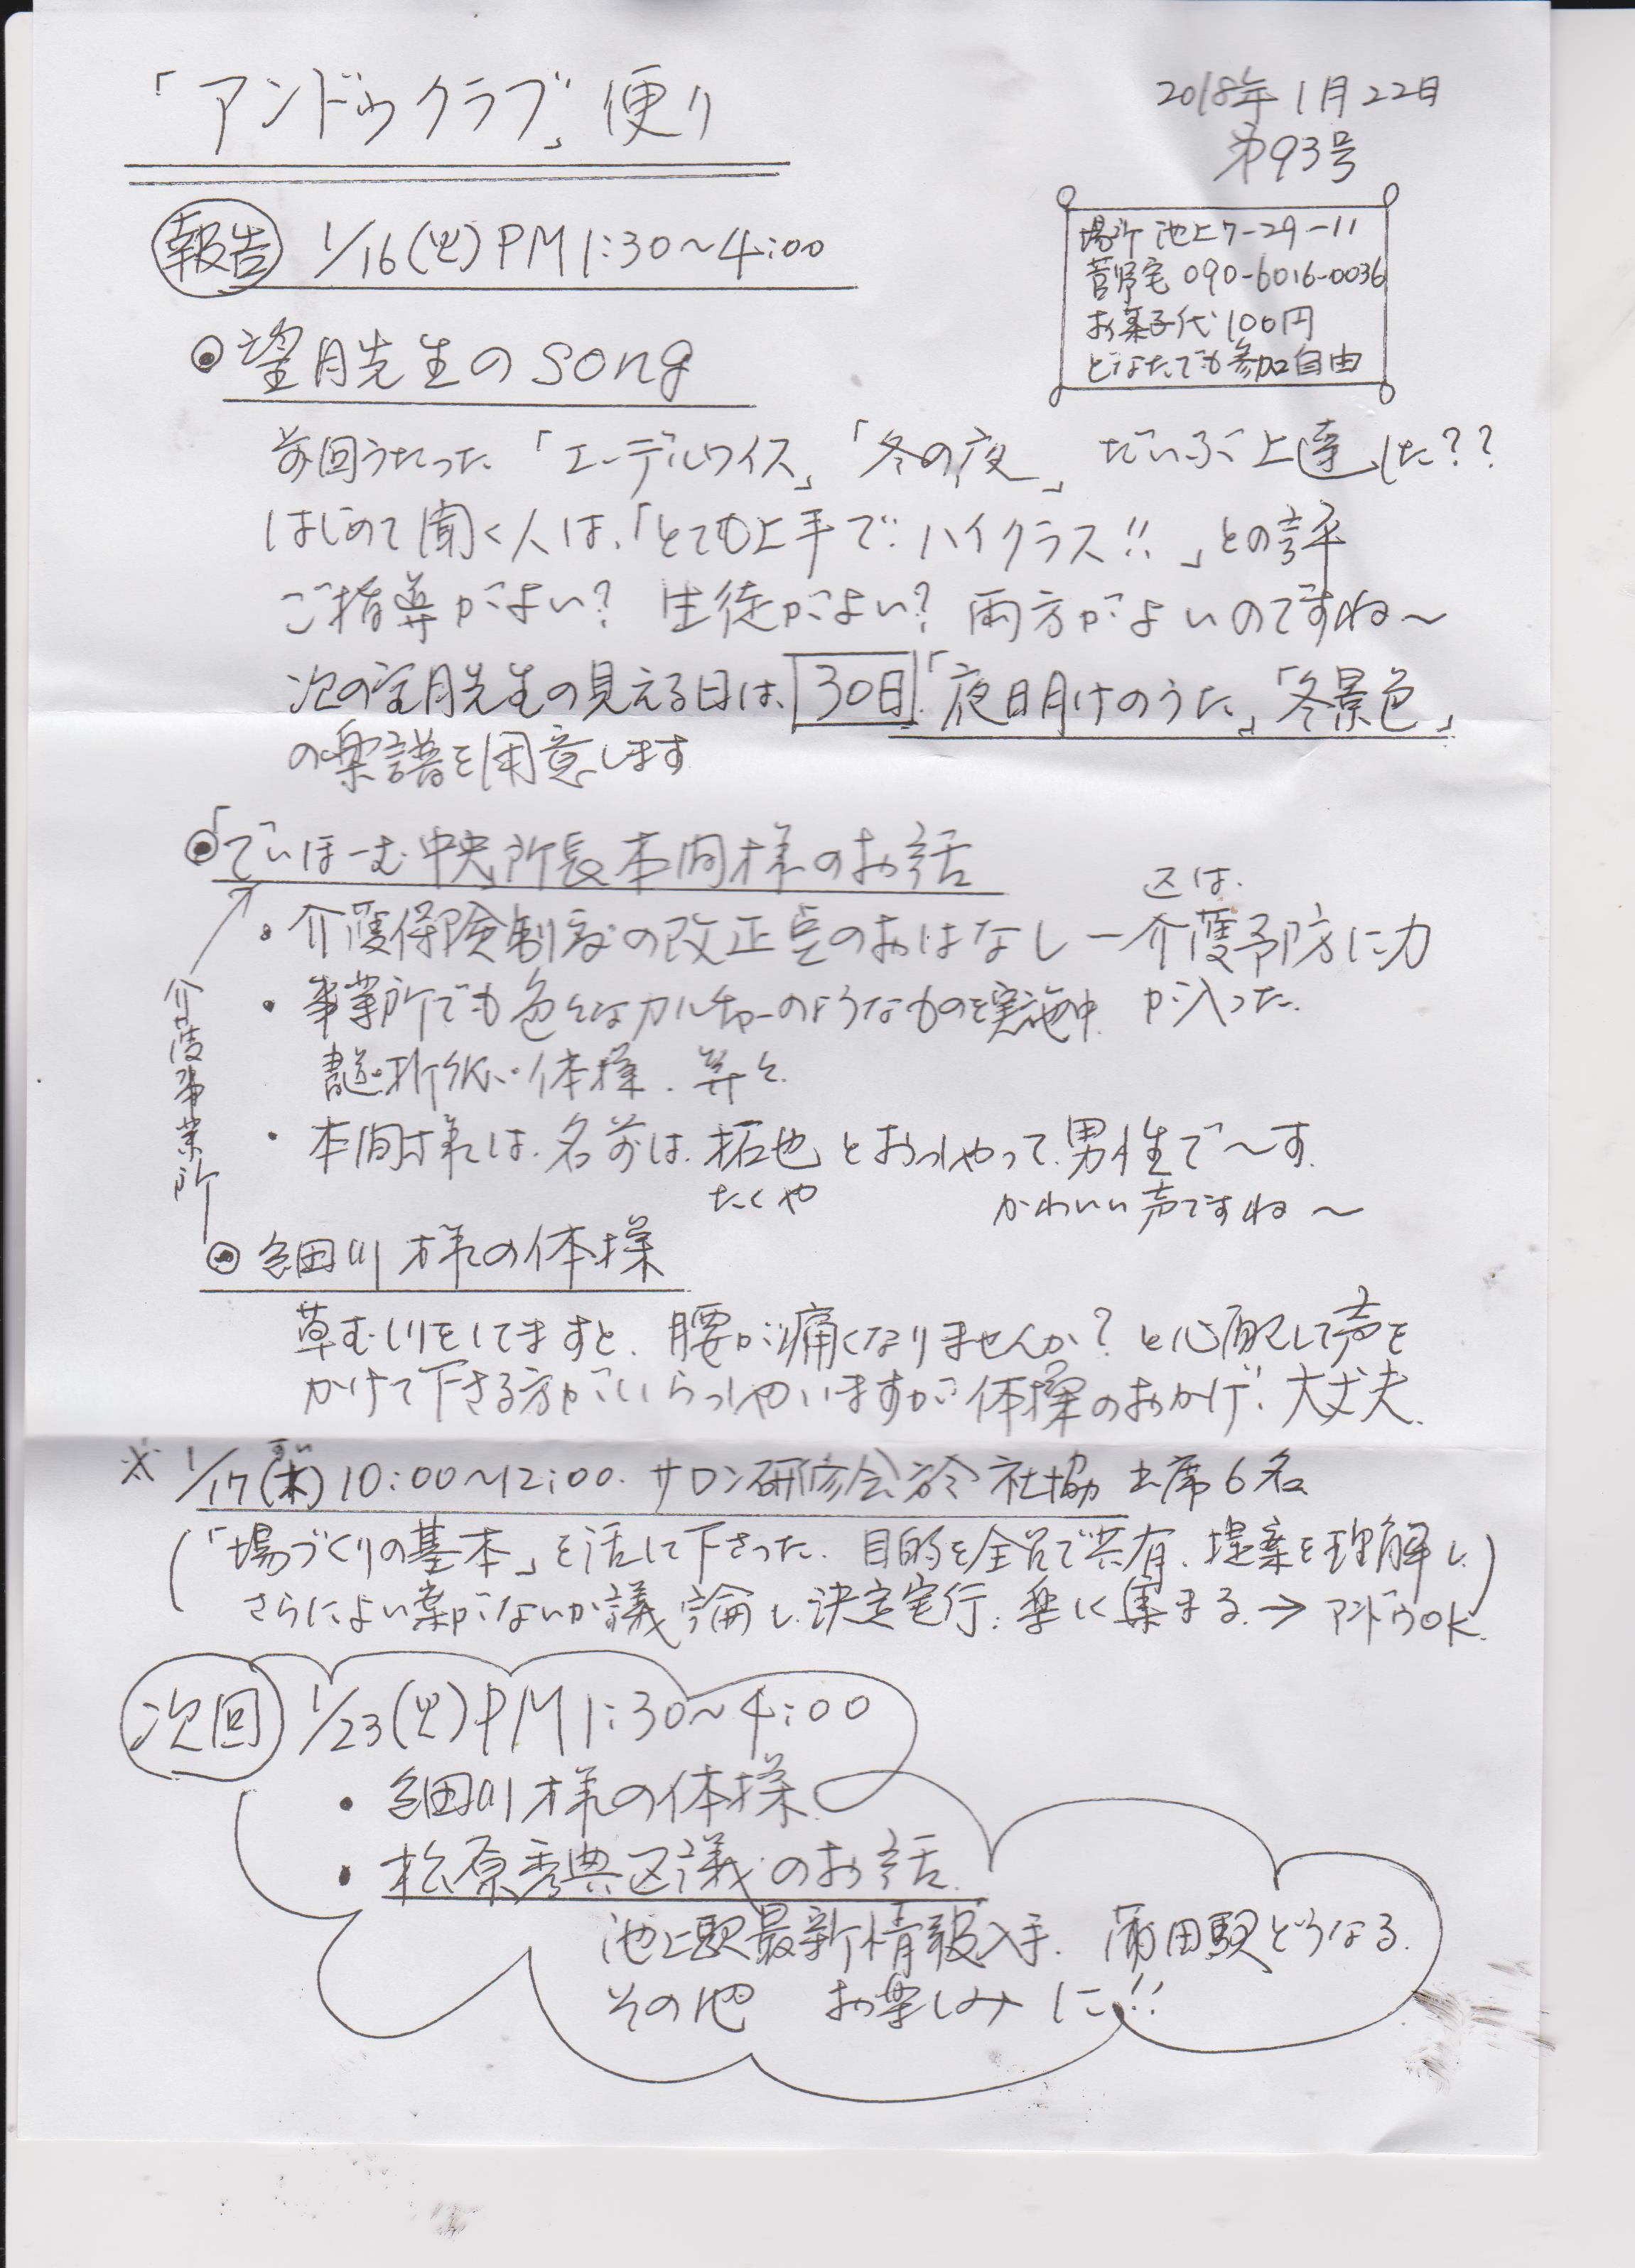 「アンドゥクラブ」便り
2018年1月22日
第93号
報告 1/16(火)PM1:30~4:00
場所 池上7-29-11
菅野宅 090-6016-0036
お菓子代 100円
どなたでも参加自由
望月先生のsong
前回うたった「エーデルワイス」「冬の夜」だいぶ上達した??
はじめて聞く人は、「とても上手で ハイクラス!!」との評
ご指導がよい? 生徒がよい? 両方がよいのですね~
次の望月先生の見える日は、30日「夜明けのうた」「冬景色」
の楽譜を用意します
「でいほーむ中央」所長本間様のお話
区は、
・介護保険制度の改正点のおはなし ー介護予防に力
が入った。
・事業所でも色々なカルチャーのようなものを実施中
書道・折紙・体操、等々
介護事業所
・本間様は、名前は、拓也とおっしゃって、男性で~す。
たくや
かわいい声ですね~
細川様の体操
草むしりをしてますと、腰が痛くなりませんか?と心配して声を
かけて下さる方がいらっしゃいますが体操のおかげ、大丈夫。
※ 1/17(水)10:00~12:00. サロン研修会於社協 出席6名
すい
(「場づくりの基本」を話して下さった。目的を全員で共有、提案を理解し、
さらによい案がないか議論し、決定実行。楽しく集まる。→アンドゥOK.)
次回 1/23(火)PM1:30~4:00
・細川様の体操
・松原秀典区議のお話
池上駅最新情報入手、蒲田駅どうなる
その他 お楽しみに!!